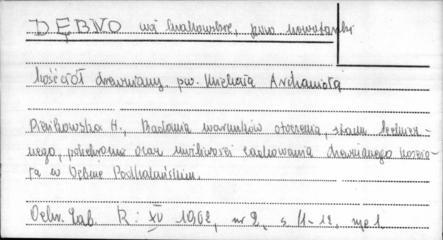 DĘBNO woj. krakowskie, pow. nowotarski
kościół drewniany pw. Michała Archanioła
Pieńkowska H., Badania warunków otoczenia, stanu technicz-
nego, polichromii oraz możliwości zachowania drewnianego kościo-
ła w Dębnie Podhalańskim.
Ochr. Zab. R: XV 1962, nr 2, s 11-12,